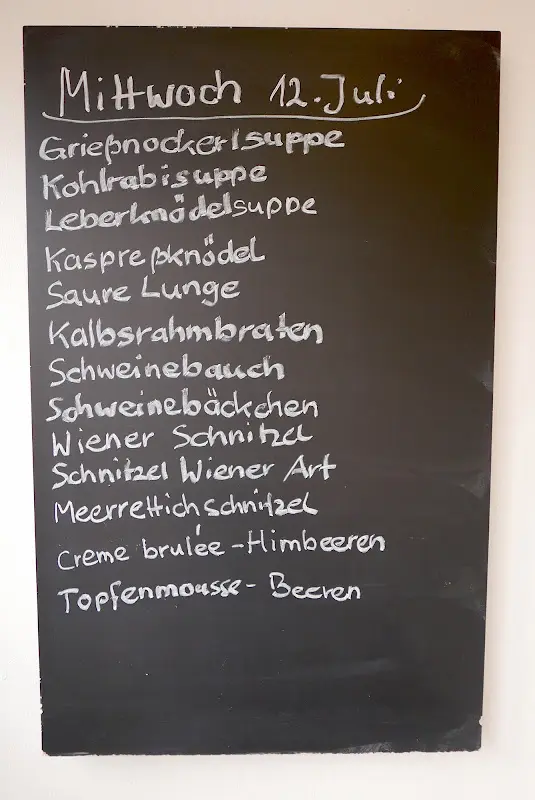 Mittwoch 12. Juli
Grießnockerlsuppe
Kohlrabisuppe
Leberknödelsuppe
Kaspreßknödel
Saure Lunge
Kalbsrahmbraten
Schweinebauch
Schweinebäckchen
Wiener Schnitzel
Schnitzel Wiener Art
Meerrettichschnitzel
Creme brulée - Himbeeren
Topfenmousse - Beeren